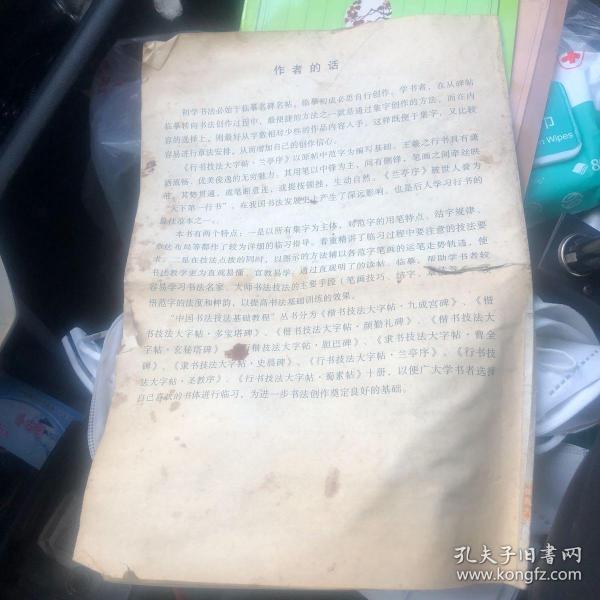 作者的话
初学书法必始于临摹名碑名帖，临摹初成必思自行创作。学书者，在从碑帖
临摹转向书法创作过程中，最便捷的方法之一就是通过集字创作的方法，而在内
容的选择上，则最好从字数相对少些的作品内容入手，这样既便于集字，又比较
容易进行章法安排，从而增加自己的创作信心。
《行书技法大字帖·兰亭序》以原帖中范字为编写基础。王羲之行书具有潇
洒流畅、优美俊逸的无穷魅力，其用笔以中锋为主，间有侧锋，笔画之间牵丝映
带，其势贯通，或笔断意连，或提按顿挫，生动自然。《兰亭序》被世人誉为
“天下第一行书”，在我国书法发展史上产生了深远影响，也是后人学习行书的
最佳范本之一。
本书有两个特点：一是以所有集字为主体，对范字的用笔特点、结字规律、
章法布局等都作了较为详细的临习指导，着重精讲了临习过程中要注意的技法要
求；二是在技法点拨的同时，以图示的方法辅以各范字笔画的运笔走势轨迹，使
书法教学更为直观易懂，宜教易学。通过直观明了的读帖、临摹，帮助学书者较
容易学习书法名家、大师书法技法的主要手段（笔画技巧、结字
悟范字的法度和神韵，以提高书法基础训练的效果。
“中国书法技法基础教程”丛书分为《楷书技法大字帖·九成宫碑》、《楷
书技法大字帖·多宝塔碑》、《楷书技法大字帖·颜勤礼碑》、《楷书技法大
字帖·玄秘塔碑》、《楷书技法大字帖·胆巴碑》、《隶书技法大字帖·曹全
碑》、《隶书技法大字帖·史晨碑》、《行书技法大字帖·兰亭序》、《行书技
法大字帖·圣教序》、《行书技法大字帖·蜀素帖》十册，以便广大学书者选择
自己喜欢的书体进行临习，为进一步书法创作奠定良好的基础。
Wipes
孔夫子旧书网
www.kongfz.com